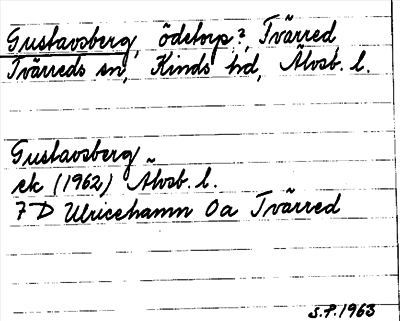 Gustavsberg, ödetorp?, Tvärred
Tvärreds sn, Kinds hd, Älvsb. l.
Gustavsberg
ek (1962) Älvsb. l.
7 D Ulricehamn 0a Tvärred
S.P. 1963